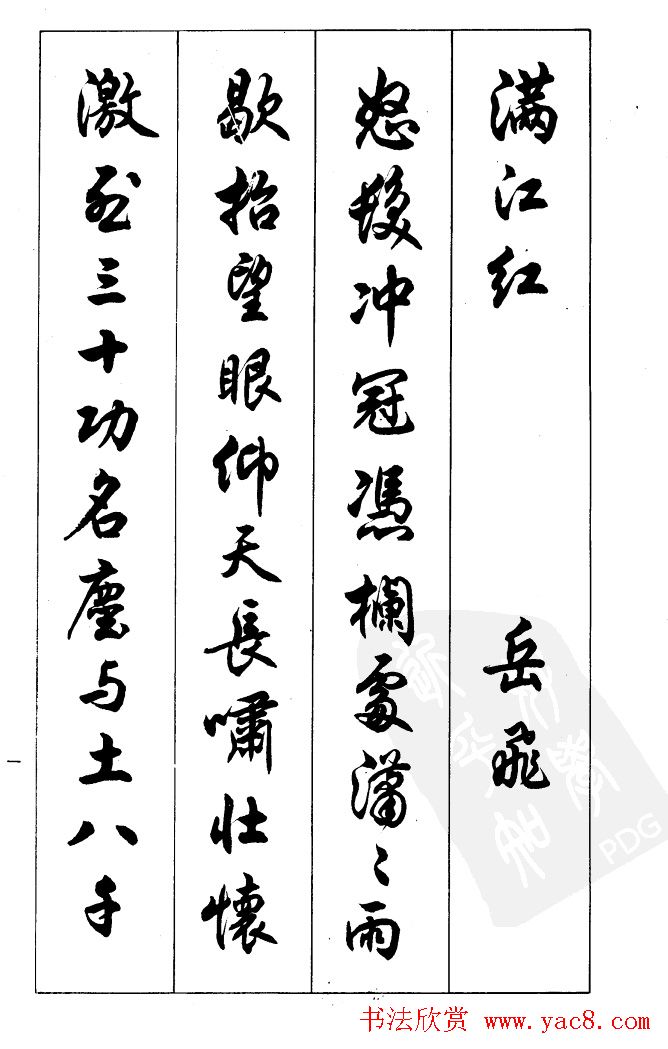 满江红 岳飛
怒髮冲冠馮欄處瀟〻雨
歇抬望眼仰天長嘯壯懷
激烈三十功名塵与土八千
一
PDG
书法欣赏 www.yac8.com